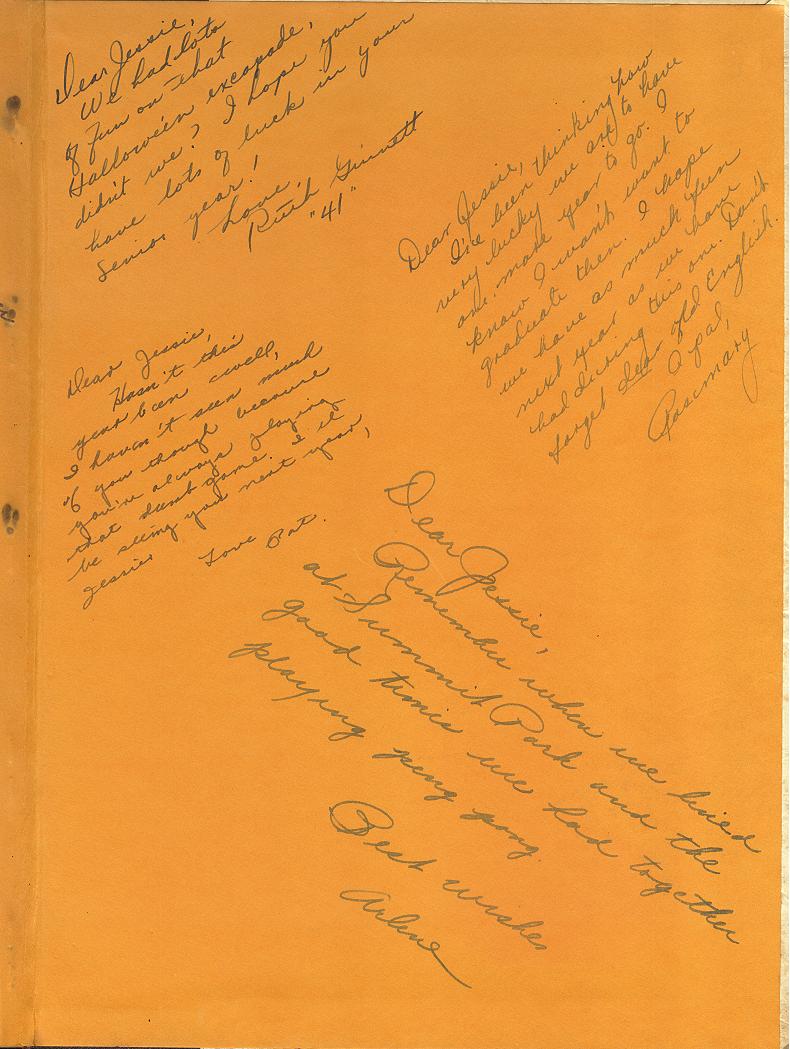 Dear Jessie,
We had lots
of fun on that
Halloween excapade,
didn't we? I hope you
have lots of luck in your
senior year!
Love,
Ruth Ginnett
"41"
Dear Jessie,
I've been thinking how
very lucky we are to have
one more year to go. I
know I wan't want to
graduate then. I hope
we have as much feen
next year as we have
had during this one. Don't
forget dear old English.
A pal,
Rosemary
Dear Jessie,
Hasn't this
year been swell,
I haven't seen much
of you though because
you're always playing
that dumb game. I'll
be seeing you next year,
Jessie.
Love Pat.
Dear Jessie,
Remember when we lived
at Summit Park and the
good times we had together
playing peng pong.
Best wishes
Arlene